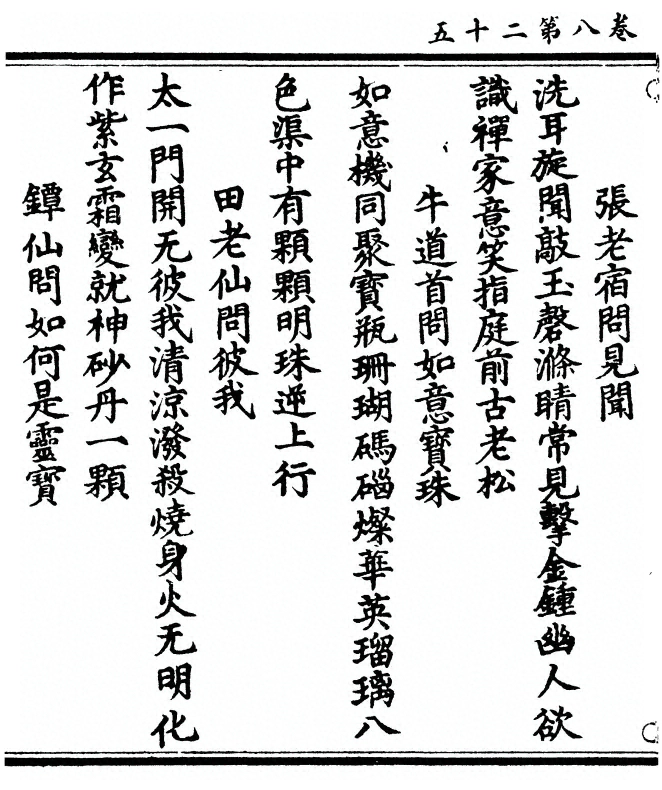 卷八第二十五
張老宿問見聞
洗耳旋聞敲玉磬滌睛常見擊金鍾幽人欲
識禪家意笑指庭前古老松
牛道首問如意寶珠
如意機同聚寶瓶珊瑚碼碯燦華英瑠璃八
色渠中有顆顆明珠逆上行
田老仙問彼我
太一門開无彼我清涼潑殺燒身火无明化
作紫玄霜變就神砂丹一顆
鐔仙問如何是靈寶